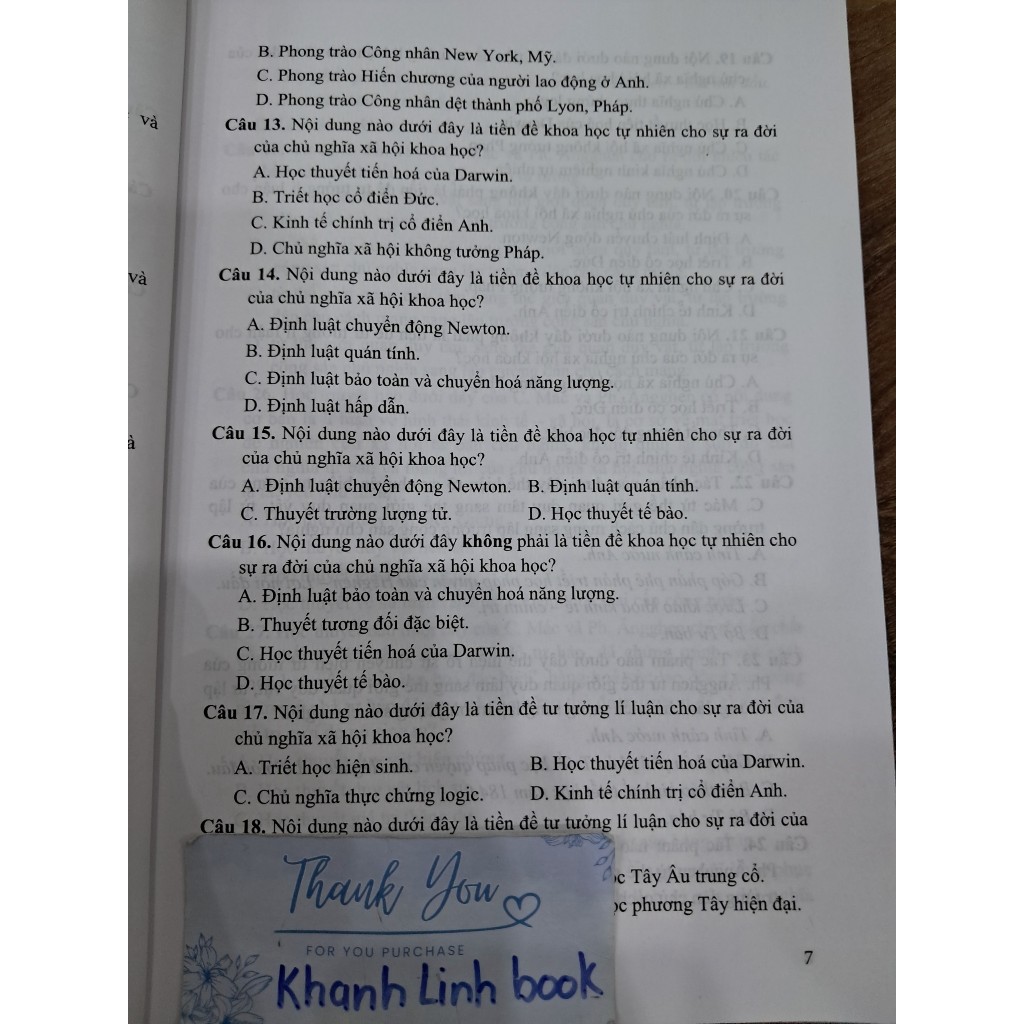 và
và
à
B. Phong trào Công nhân New York, Mỹ.
C. Phong trào Hiến chương của người lao động ở Anh.
D. Phong trào Công nhân dệt thành phố Lyon, Pháp.
Câu 13. Nội dung nào dưới đây là tiền đề khoa học tự nhiên cho sự ra đời
của chủ nghĩa xã hội khoa học?
A. Học thuyết tiến hoá của Darwin.
B. Triết học cổ điển Đức.
C. Kinh tế chính trị cổ điển Anh.
D. Chủ nghĩa xã hội không tưởng Pháp.
Câu 14. Nội dung nào dưới đây là tiền đề khoa học tự nhiên cho sự ra đời
của chủ nghĩa xã hội khoa học?
A. Định luật chuyển động Newton.
B. Định luật quán tính.
C. Định luật bảo toàn và chuyển hoá năng lượng.
D. Định luật hấp dẫn.
Câu 15. Nội dung nào dưới đây là tiền đề khoa học tự nhiên cho sự ra đời
của chủ nghĩa xã hội khoa học?
A. Định luật chuyển động Newton. B. Định luật quán tính.
C. Thuyết trường lượng tử. D. Học thuyết tế bào.
Câu 16. Nội dung nào dưới đây không phải là tiền đề khoa học tự nhiên cho
sự ra đời của chủ nghĩa xã hội khoa học?
A. Định luật bảo toàn và chuyển hoá năng lượng.
B. Thuyết tương đối đặc biệt.
C. Học thuyết tiến hoá của Darwin.
D. Học thuyết tế bào.
Câu 17. Nội dung nào dưới đây là tiền đề tư tưởng lí luận cho sự ra đời của
chủ nghĩa xã hội khoa học?
A. Triết học hiện sinh. B. Học thuyết tiến hoá của Darwin.
C. Chủ nghĩa thực chứng logic. D. Kinh tế chính trị cổ điển Anh.
Câu 18. Nội dung nào dưới đây là tiền đề tư tưởng lí luận cho sự ra đời của
Tây Âu trung cổ.
phương Tây hiện đại.
Thank You
FOR YOU PURCHASE
Khanh Linh book
7